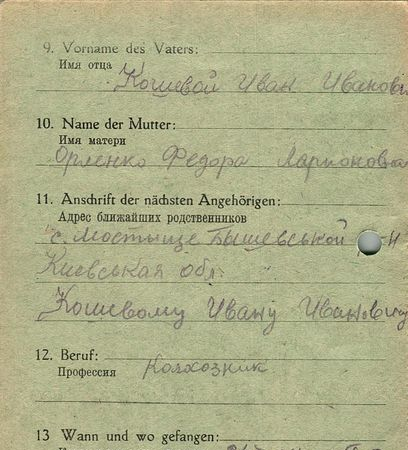 9. Vorname des Vaters:
Имя отца
Кошевой Иван Иванови
10. Name der Mutter:
Имя матери
Орленко Федора Ларионовна
11. Anschrift der nächsten Angehörigen:
Адрес ближайших родственников
с. Мостыще Бышевськой
Киевськая обл.
Кошевому Ивану Ивановичу
12. Beruf:
Профессия
Колхозник
13 Wann und wo gefangen: